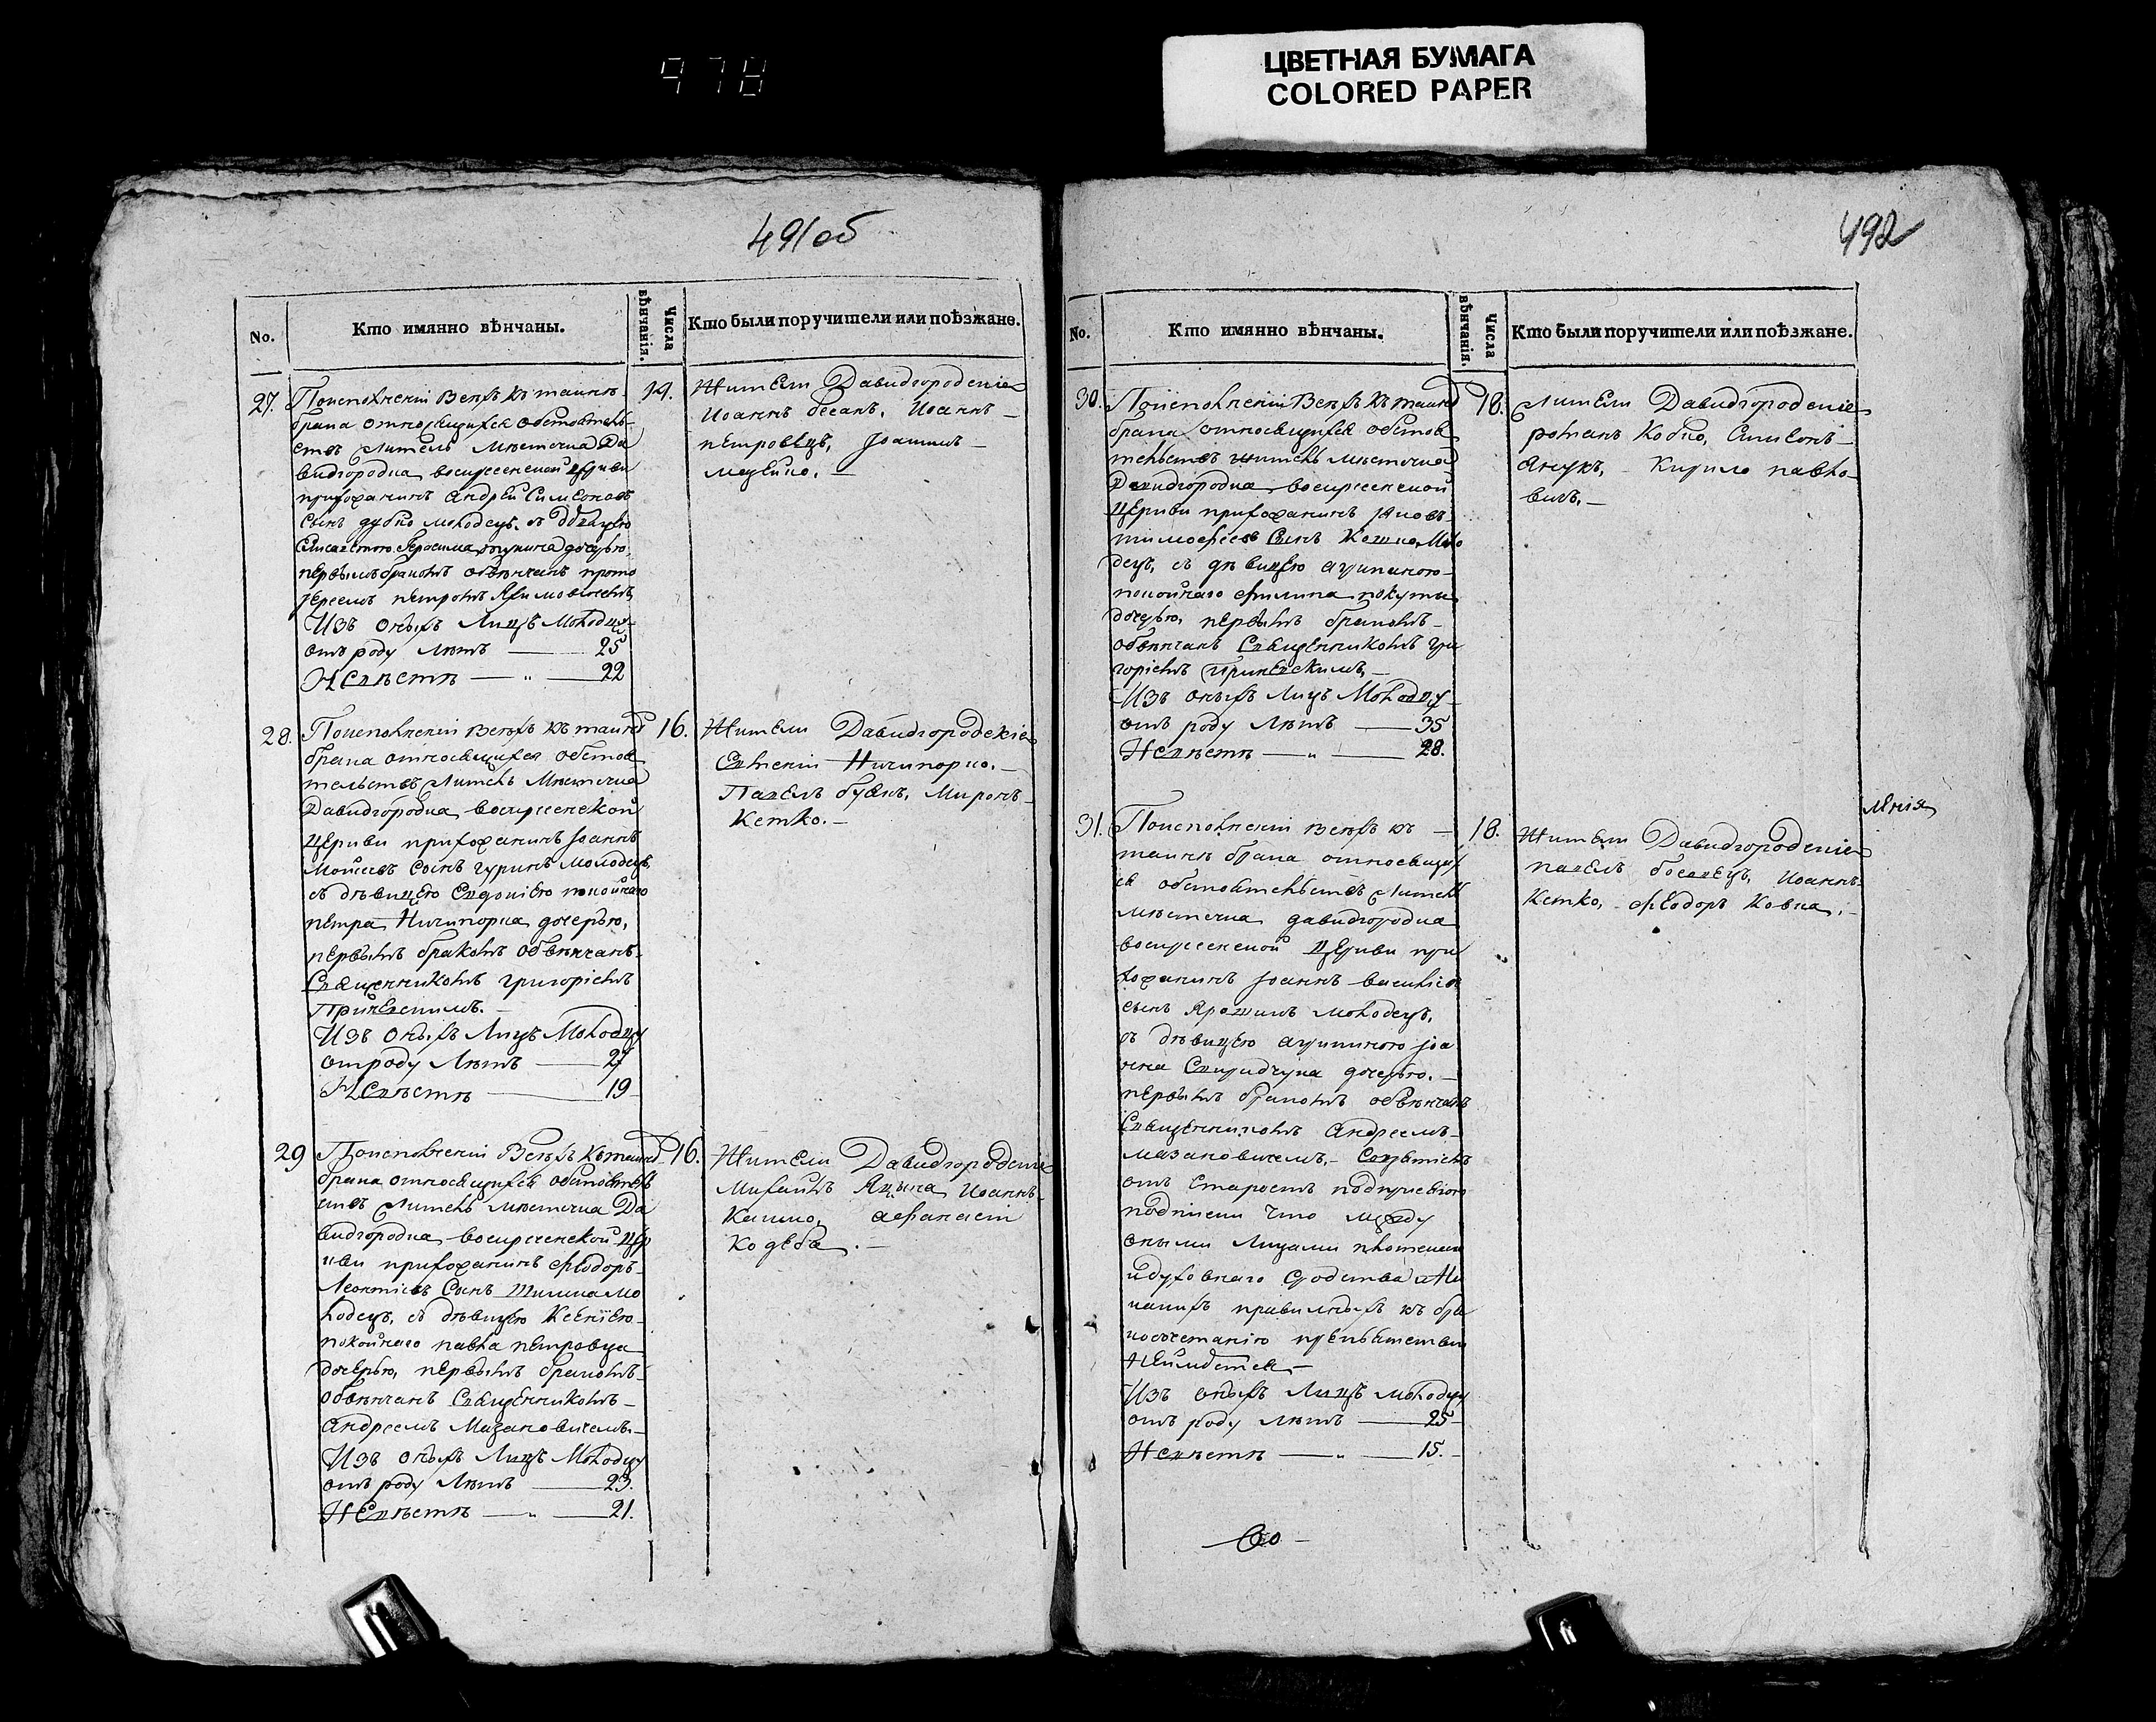 978
ЦВЕТНАЯ БУМАГА
COLORED PAPER
491об
No.
Кто имянно вѣнчаны.
Числа вѣнчанія.
Кто были поручители или поѣзжане.
27.
По исполненіи всѣхъ къ таинѣ
брака относящихся обстоятель
ствъ житель мѣстечка Да
видгородка воскресенской церкви
прихожанинъ Андрей Симеоновъ
сынъ дубко молодецъ. съ
Герасима дочерью,
первымъ бракомъ обвѣнчанъ прото
іереемъ Петромъ
Изъ оныхъ лицъ молодцу
отъ роду лѣтъ — 25
Невѣстѣ — „ — 22
14.
Жители Давидгородскіе
Иоаннъ бесанъ, Иоаннъ
петровецъ, Іоакимъ
28.
По исполненіи всѣхъ къ таинѣ
брака относящихся обстоя
тельствъ житель мѣстечка
Давидгородка воскресенской
церкви прихожанинъ Іоаннъ
Моисеевъ сынъ гуринъ молодецъ,
съ дѣвицею Евдокіею покойнаго
петра Ничипорка дочерью,
первымъ бракомъ обвѣнчанъ
Священникомъ григоріемъ
Изъ оныхъ лицъ молодцу
отроду лѣтъ — 27
Невѣстѣ — 19
16.
Жители Давидгородскіе
Ничипорко.
Павелъ буякъ, Миронъ
Кетко. —
29
По исполненіи всѣхъ къ таинѣ
брака относящихся обстоятель
ствъ житель мѣстечка Да
видгородка воскресенской цер
кви прихожанинъ Ѳеодоръ
Леонтіевъ сынъ Шишка мо
лодецъ, съ дѣвицею Ксеніею
покойнаго павла петровца
дочерью, первымъ бракомъ
обвѣнчанъ Священникомъ
Андреемъ Мазановичемъ. —
Изъ оныхъ лицъ молодцу
отъ роду лѣтъ — 23.
Невѣстѣ — „ — 21.
16.
Жители Давидгородскіе
Михаилъ Яцына Иоаннъ
афанасій
492
No.
Кто имянно вѣнчаны.
Числа вѣнчанія.
Кто были поручители или поѣзжане.
30.
По исполненіи всѣхъ къ таинѣ
брака относящихся обстоя
тельствъ житель мѣстечка
Давидгородка воскресенской
церкви прихожанинъ Яковъ
тимофеевъ сынъ моло
децъ, съ дѣвицею агрипиною
покойнаго филипа
дочерью, первымъ бракомъ
обвѣнчанъ Священникомъ гри
горіемъ
Изъ оныхъ лицъ молодцу
отъ роду лѣтъ — 35
Невѣстѣ — „ — 28.
18.
Жители Давидгородскіе
романъ Ковко, Симеонъ
Янукъ, Кирило павло
вичъ. —
31.
По исполненіи всѣхъ къ —
таинѣ брака относящих
ся обстоятельствъ житель
мѣстечка давидгородка
воскресенской церкви при
хожанинъ Іоаннъ василіевъ
сынъ молодецъ,
съ дѣвицею агрипиною Іоа
нна дочерью. —
первымъ бракомъ обвѣнчанъ
Священникомъ Андреемъ
мазановичемъ. —
отъ старостъ
подписки что между
оными лицами плотскаго
и духовнаго сродства и ни
какихъ правильныхъ къ бра
косочетанію препятствій
неимѣется —
Изъ оныхъ лицъ молодцу
отъ роду лѣтъ — 25 —
Невѣстѣ — „ — 15. —
18.
Жители Давидгородскіе
павелъ Иоаннъ
Кетко, Ѳеодоръ Ковка. —